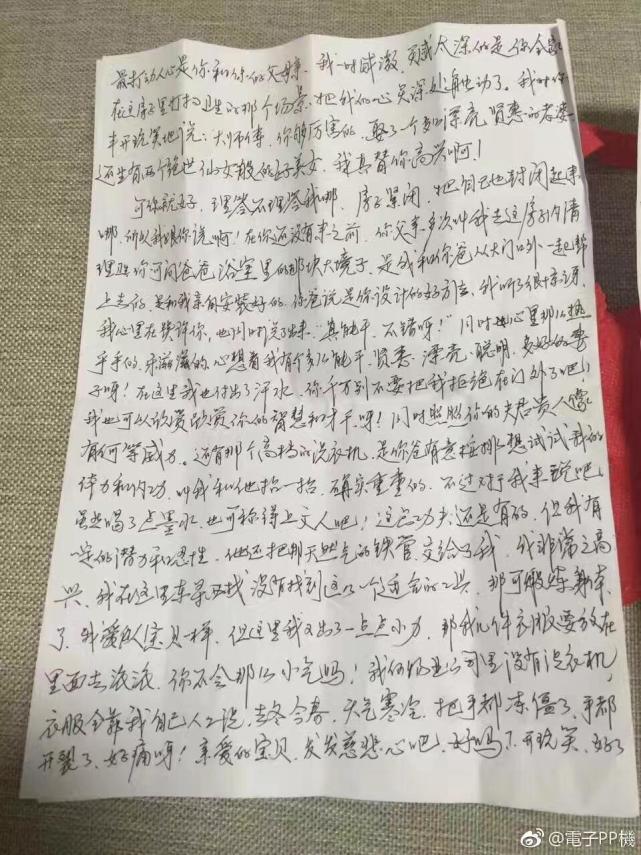 最打动人心是你和你的父母亲,我一时感激,灵感太深的是你全家
在这房子里打扫卫生的那个场景,把我的心灵深处触动了。我对你
半开玩笑地说:大师傅,你够厉害的,娶了一个多么漂亮,贤惠的老婆
还生有两个绝世仙女般的好美女,我真替你高兴啊!
可你就好,理答不理答我哪,房子紧闭,把自己也封闭起来
哪,所以我跟你说啊!在你还没有来之前,你父亲多次叫我去这房子内清
理 你可问爸爸浴室里的那块大境子,是我和你爸从大门口外一起帮
上去的,是和我亲自安装好的,你爸说是你设计的好方法,我听了很惊讶,
我心里在夸许你,也同时说了出来,"真能干,不错呀!"同时我心里那么热
乎乎的,乐滋滋的,心想着我有个多么能干,贤惠,漂亮,聪明,多好的妻
子呀!在这里我也付出了汗水,你千万别不要把我拒绝在门外了吧,
我也可以欣赏欣赏你的智慧和才干呀!同时照照你的夫君贵人像
有何等威力。还有那个高档的洗衣机,是你爸有意 想试试我的
体力和内功,叫我和他抬一抬,确实重重的,不过对于我来说吧,
虽然喝了点墨水,也可称得上文人吧!这些功夫还是有的,但我有
一定的潜力和忍性,他还把那天然气的铁管交给了我,我非常之高
兴,我在这里东寻西找,没有找到这么一个适合的工具,那可 练熟本
了,我爱你宝贝一样,但这里我又出了一点点小力,那我几件衣服要放在
里面去 你不会那么小气吗!我们物业公司里没有洗衣机,
衣服全靠我自己人工洗,去冬今春,天气寒冷,把手都冻僵了,手都
开裂了,好痛呀!亲爱的宝贝,发发慈悲心吧,好吗?不开玩笑,好了
@電子PP機